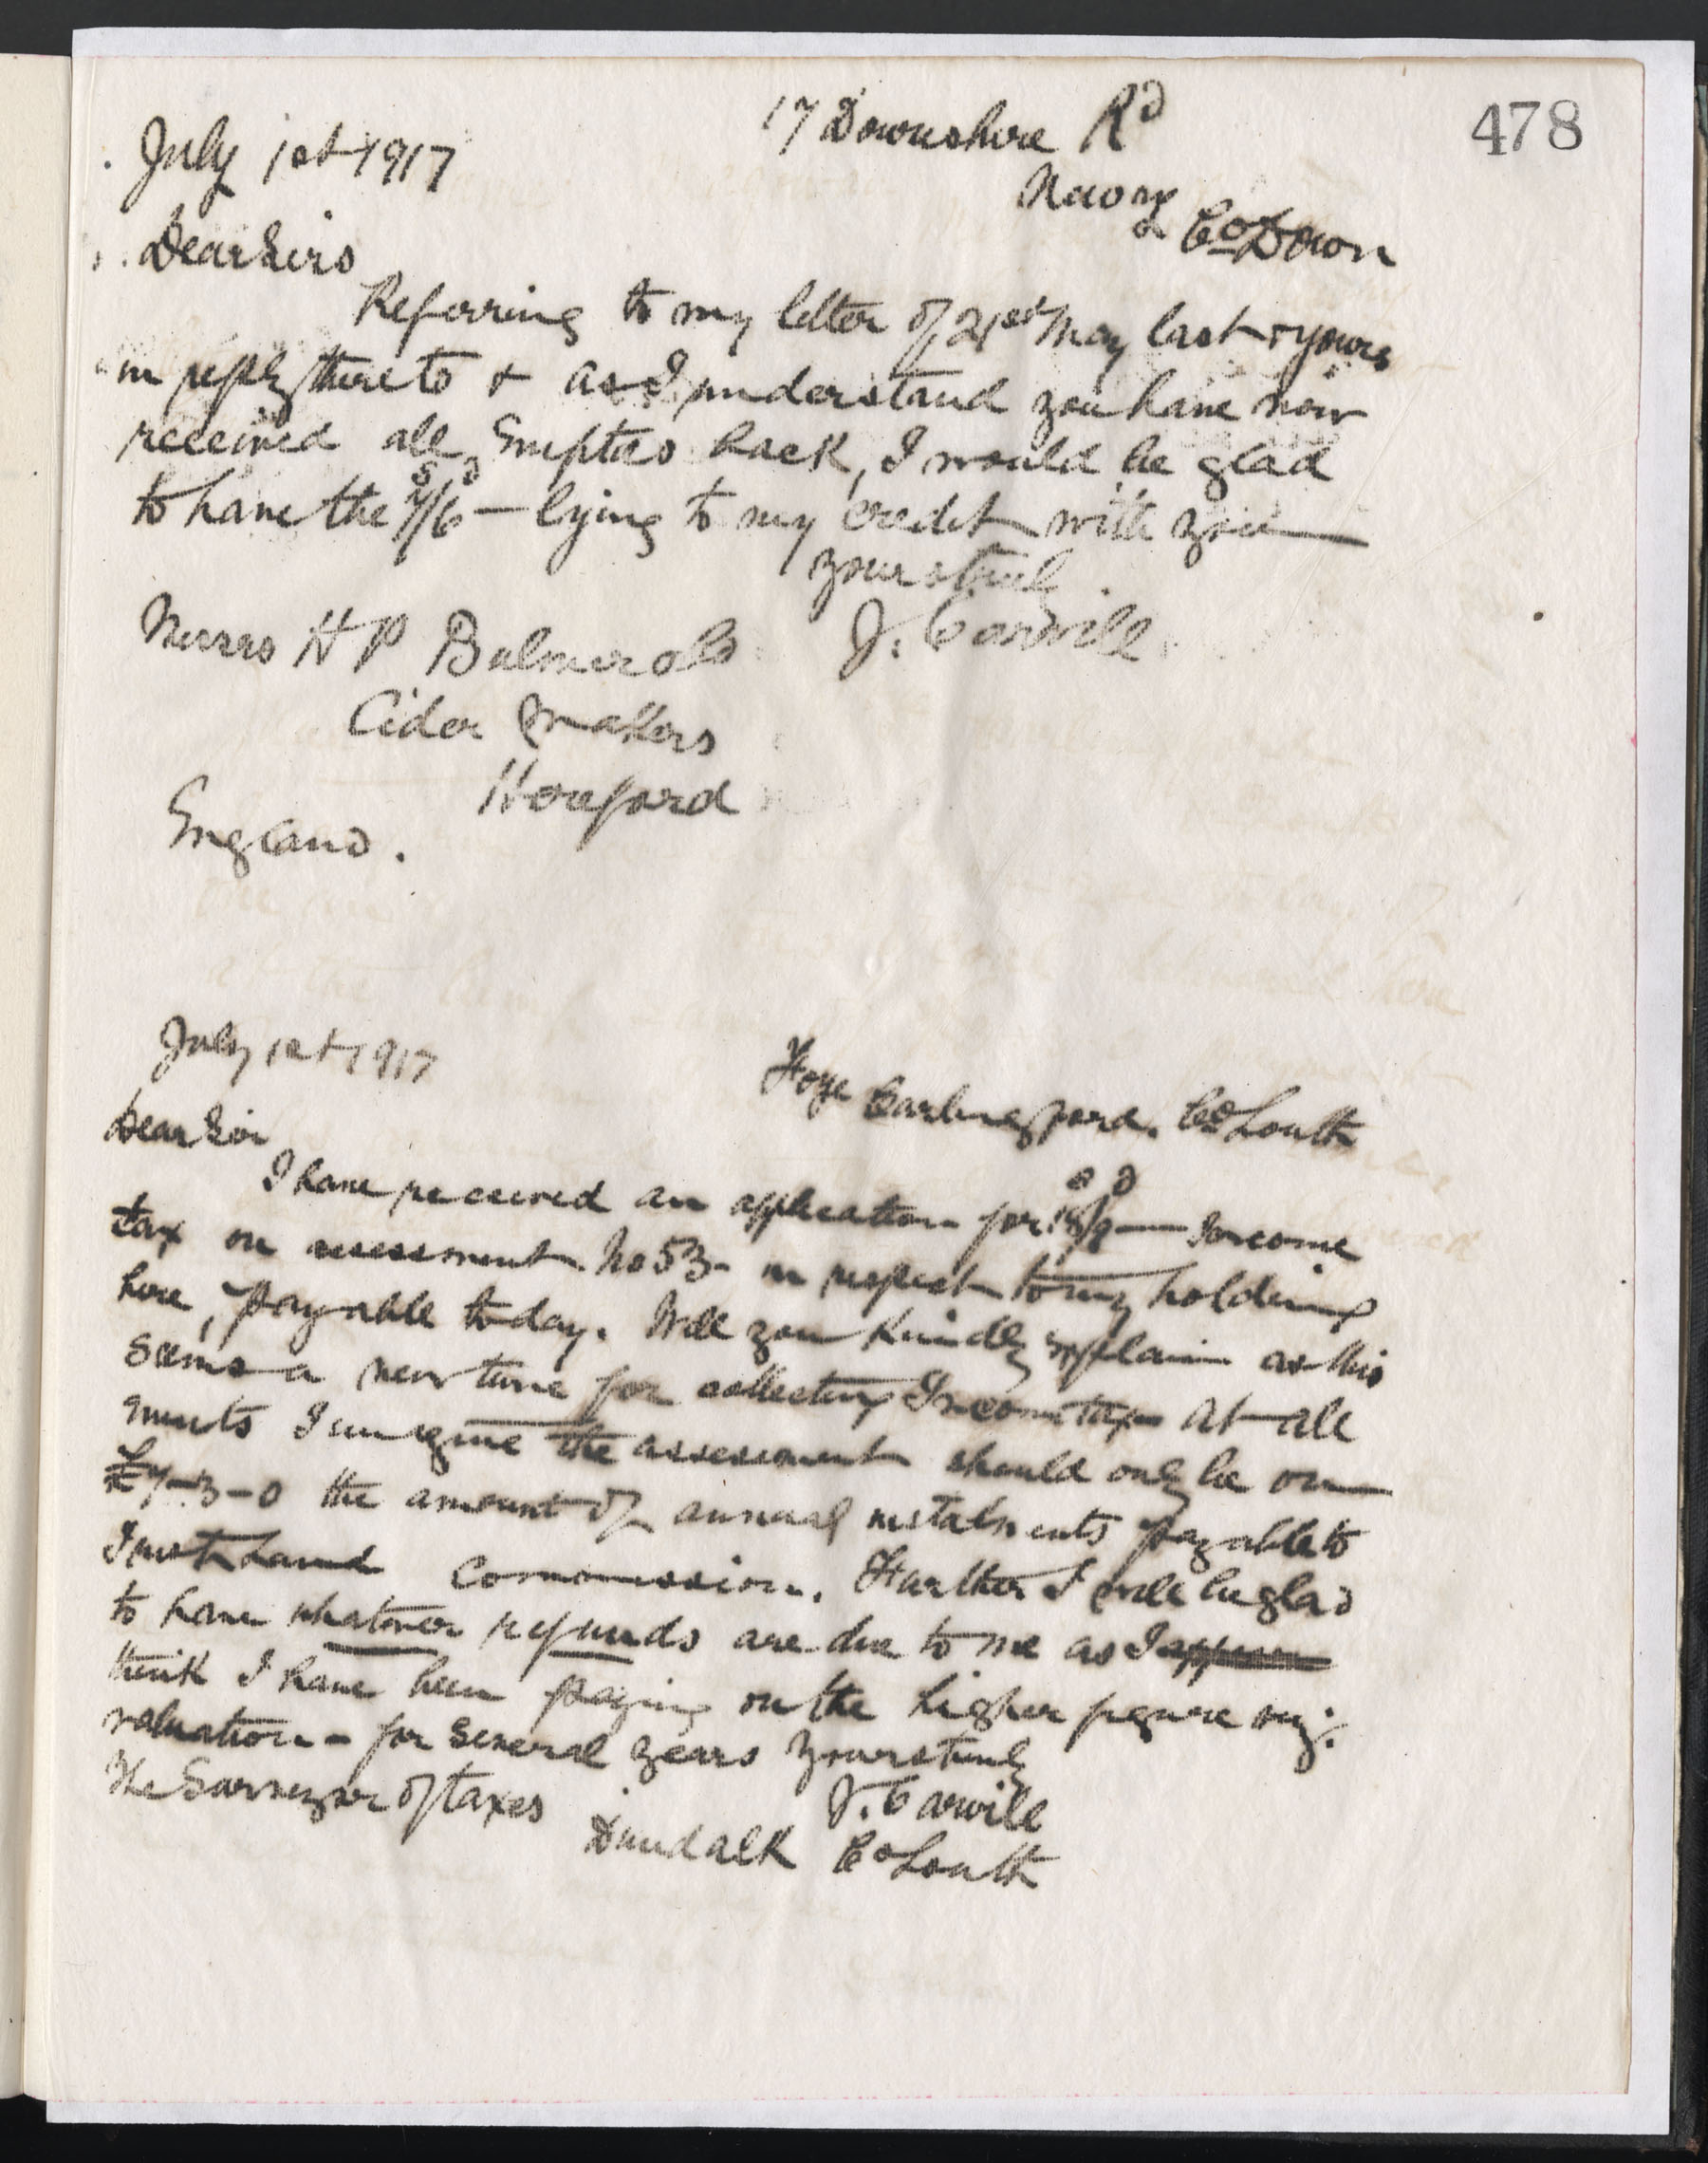 478
17 Downshire Rd
July 1st 1917
Newry
Co Down
Dear Sirs
Referring to my letter of 21st May last & yours
in reply thereto & as I understand you have now
received all Empties back, I would be glad
s d
to have the 7/6 — lying to my credit with you
yours truly
J. Carvill
Messrs H P Bulmer & Co
Cider Makers
Hereford
England.
July 1st 1917
Carlingford. Co Louth
Dear Sir
I have received an application for 18/9 — Income
tax on assessment No 53 - in respect to my holding
here, payable today. Will you kindly explain as this
seems a new time for collecting Income tax at all
events I imagine the assessment should only be on
£7-3-0 the amount of annual instalments payable to
Irish Land Commission. Further I will be glad
to have whatever refunds are due to me as I
think I have been paying on the higher figure viz:
valuation - for several years Yours truly
J. Carvill
The Surveyor of taxes
Dundalk Co Louth